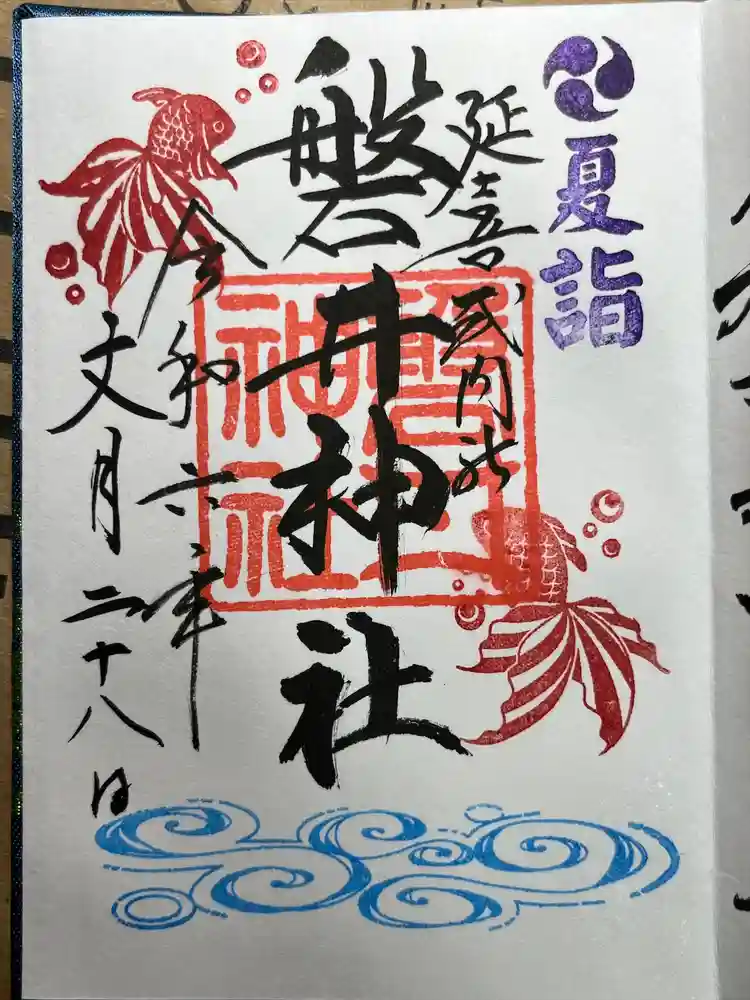 夏詣
延喜式内社
磐井神社
磐井
神社
令和六年
文月二十八日